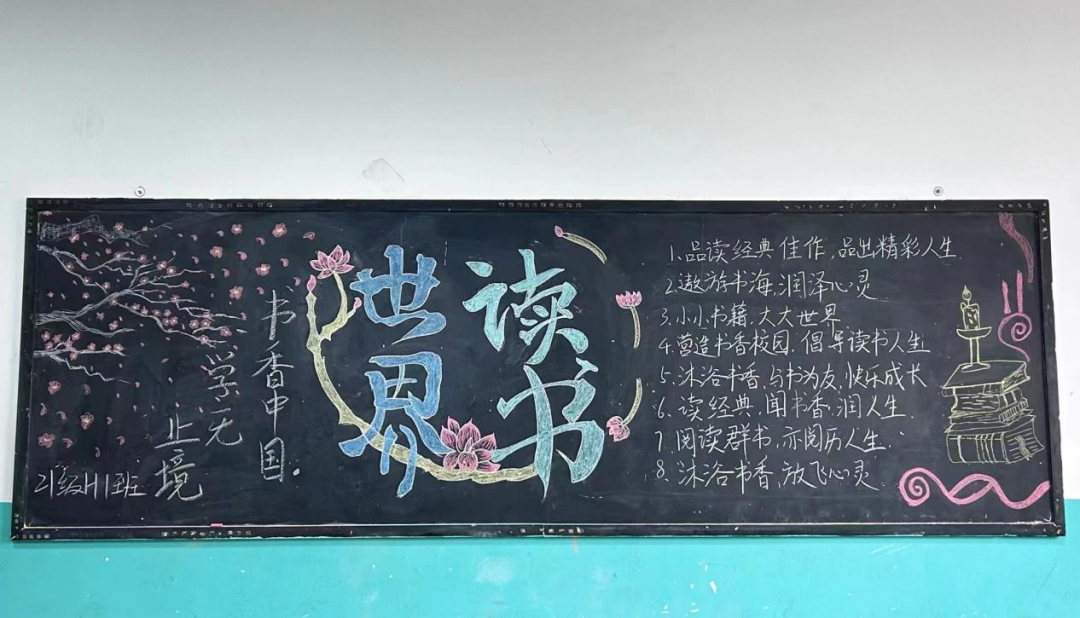 读书
世界
书香中国.
学无
止境
21级H1班
1.品读经典佳作,品出精彩人生.
2.遨游书海,润泽心灵
3.小小书籍,大大世界
4.营造书香校园,倡导读书人生
5.沐浴书香,与书为友,快乐成长
6.读经典,闻书香,润人生.
7.阅读群书,亦阅历人生.
8.沐浴书香,放飞心灵